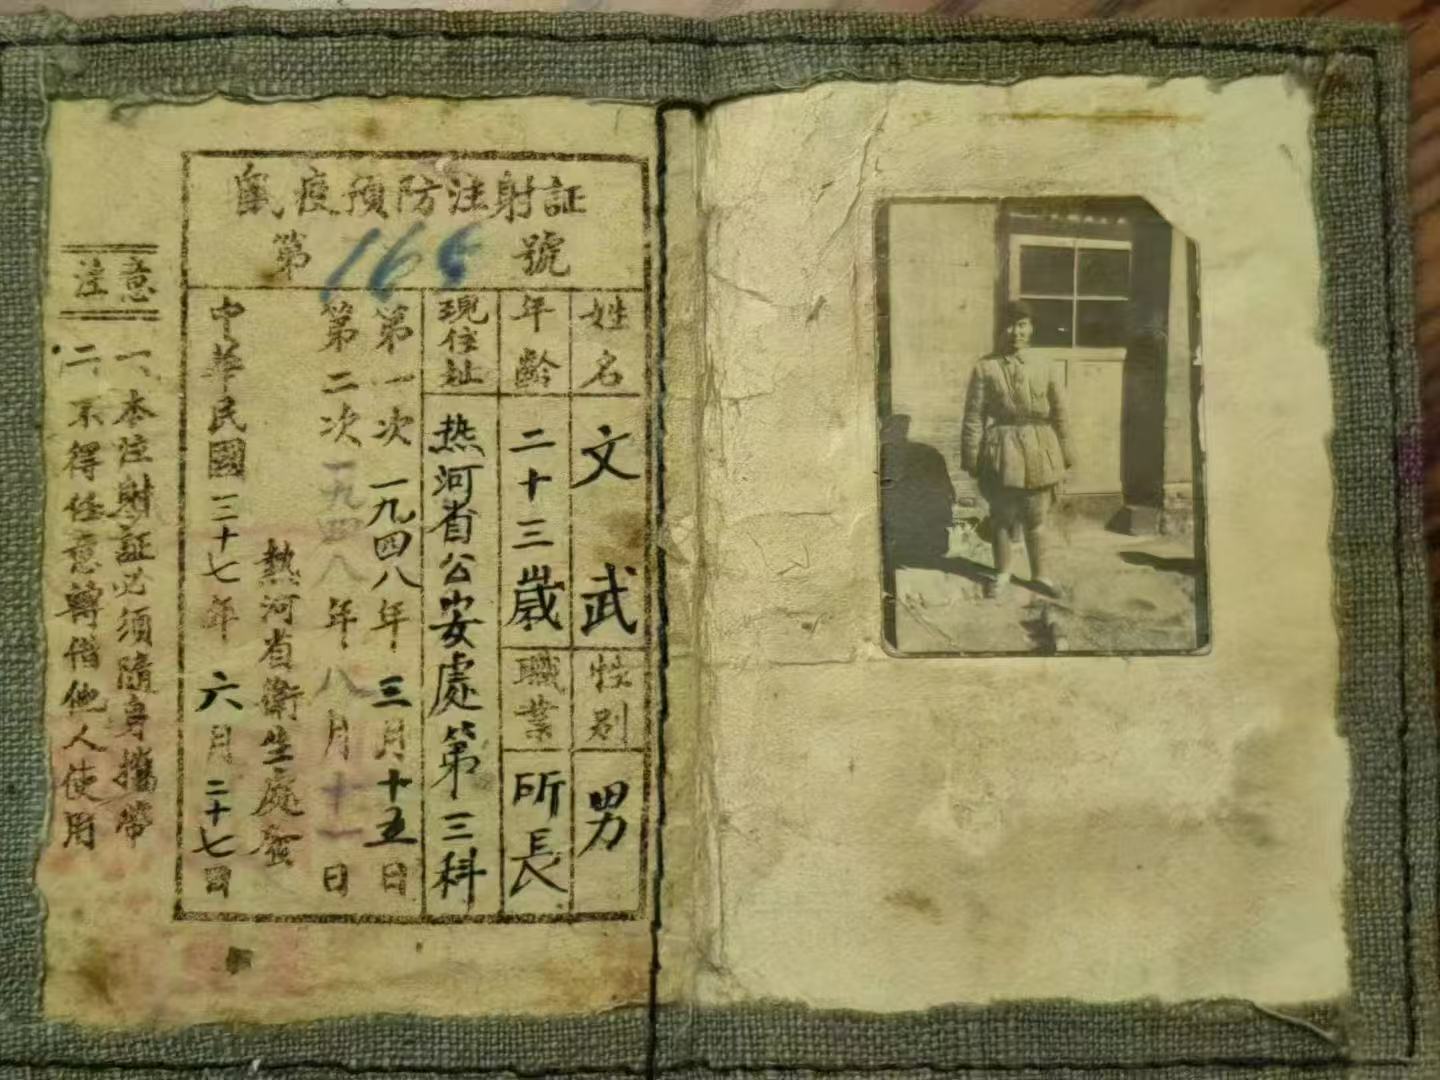 鼠疫預防注射証
第168號
姓名 文武 性别 男
年齡 二十三歲 職業 所長
現住址 热河省公安處第三科
第一次一九四八年三月十五日
第二次一九四八年八月十一日
熱河省衛生處發
中華民國三十七年六月二十七日
注意
一、本注射証必须隨身攜帶
二、不得任意轉借他人使用